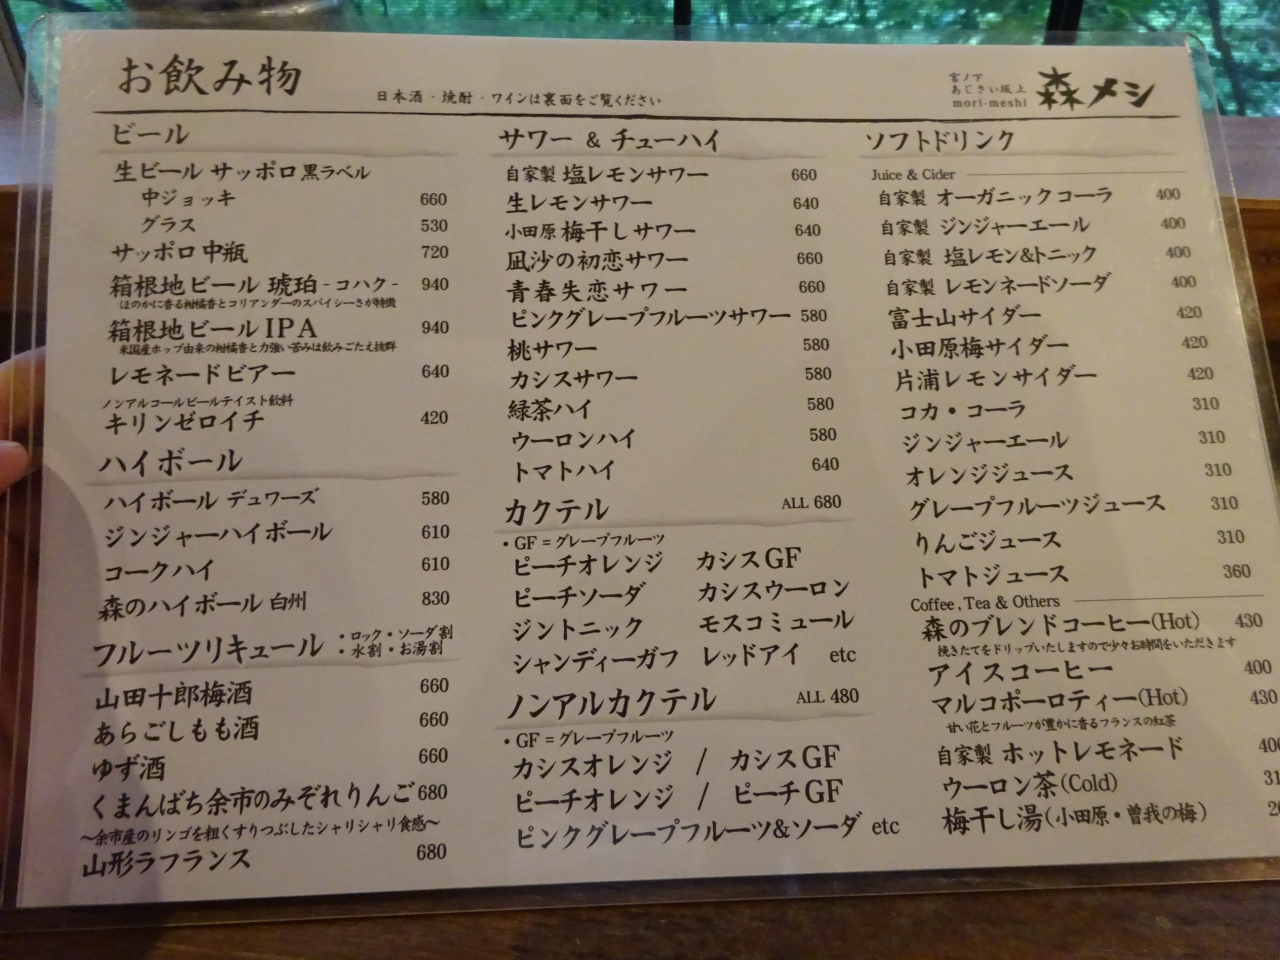 お飲み物
日本酒・焼酎・ワインは裏面をご覧ください
宮ノ下
あじさい坂上
mori-meshi
森メシ
ビール
生ビール サッポロ黒ラベル
中ジョッキ 660
グラス 530
サッポロ中瓶 720
箱根地ビール 琥珀 -コハク- 940
ほのかに香る柑橘香とコリアンダーのスパイシーさが特徴
箱根地ビールIPA 940
米国産ホップ由来の柑橘香と力強い苦みは飲みごたえ抜群
レモネードビアー 640
ノンアルコールビールテイスト飲料
キリンゼロイチ 420
ハイボール
ハイボール デュワーズ 580
ジンジャーハイボール 610
コークハイ 610
森のハイボール 白州 830
フルーツリキュール ・ロック・ソーダ割
・水割・お湯割
山田十郎梅酒 660
あらごしもも酒 660
ゆず酒 660
くまんばち余市のみぞれりんご 680
～余市産のリンゴを粗くすりつぶしたシャリシャリ食感～
山形ラフランス 680
サワー & チューハイ
自家製 塩レモンサワー 660
生レモンサワー 640
小田原 梅干しサワー 640
凪沙の初恋サワー 660
青春失恋サワー 660
ピンクグレープフルーツサワー 580
桃サワー 580
カシスサワー 580
緑茶ハイ 580
ウーロンハイ 580
トマトハイ 640
カクテル ALL 680
・GF＝グレープフルーツ
ピーチオレンジ カシスGF
ピーチソーダ カシスウーロン
ジントニック モスコミュール
シャンディーガフ レッドアイ etc
ノンアルカクテル ALL 480
・GF＝グレープフルーツ
カシスオレンジ / カシスGF
ピーチオレンジ / ピーチGF
ピンクグレープフルーツ&ソーダ etc
ソフトドリンク
Juice & Cider
自家製 オーガニックコーラ 400
自家製 ジンジャーエール 400
自家製 塩レモン&トニック 400
自家製 レモンネードソーダ 400
富士山サイダー 420
小田原梅サイダー 420
片浦レモンサイダー 420
コカ・コーラ 310
ジンジャーエール 310
オレンジジュース 310
グレープフルーツジュース 310
りんごジュース 310
トマトジュース 360
Coffee, Tea & Others
森のブレンドコーヒー(Hot) 430
挽きたてをドリップいたしますので少々お時間をいただきます
アイスコーヒー 400
マルコポーロティー(Hot) 430
甘い花とフルーツが豊かに香るフランスの紅茶
自家製 ホットレモネード
ウーロン茶(Cold)
梅干し湯(小田原・曽我の梅)